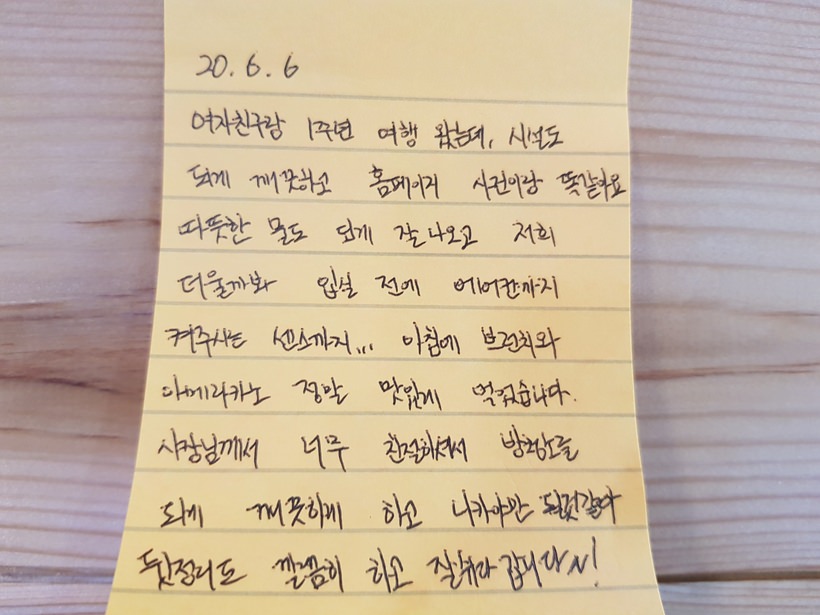 20. 6. 6
여자친구랑 1주년 여행 왔는데, 시설도
되게 깨끗하고 홈페이지 사진이랑 똑같아요
따뜻한 물도 되게 잘 나오고 저희
더울까봐 입실 전에 에어컨까지
켜주시는 센스까지... 아침에 브런치와
아메리카노 정말 맛있게 먹었습니다.
사장님께서 너무 친절하셔서 방청소를
되게 깨끗하게 하고 나가야만 될것같아
뒷정리도 깔끔히 하고 잘 쉬다 갑니다